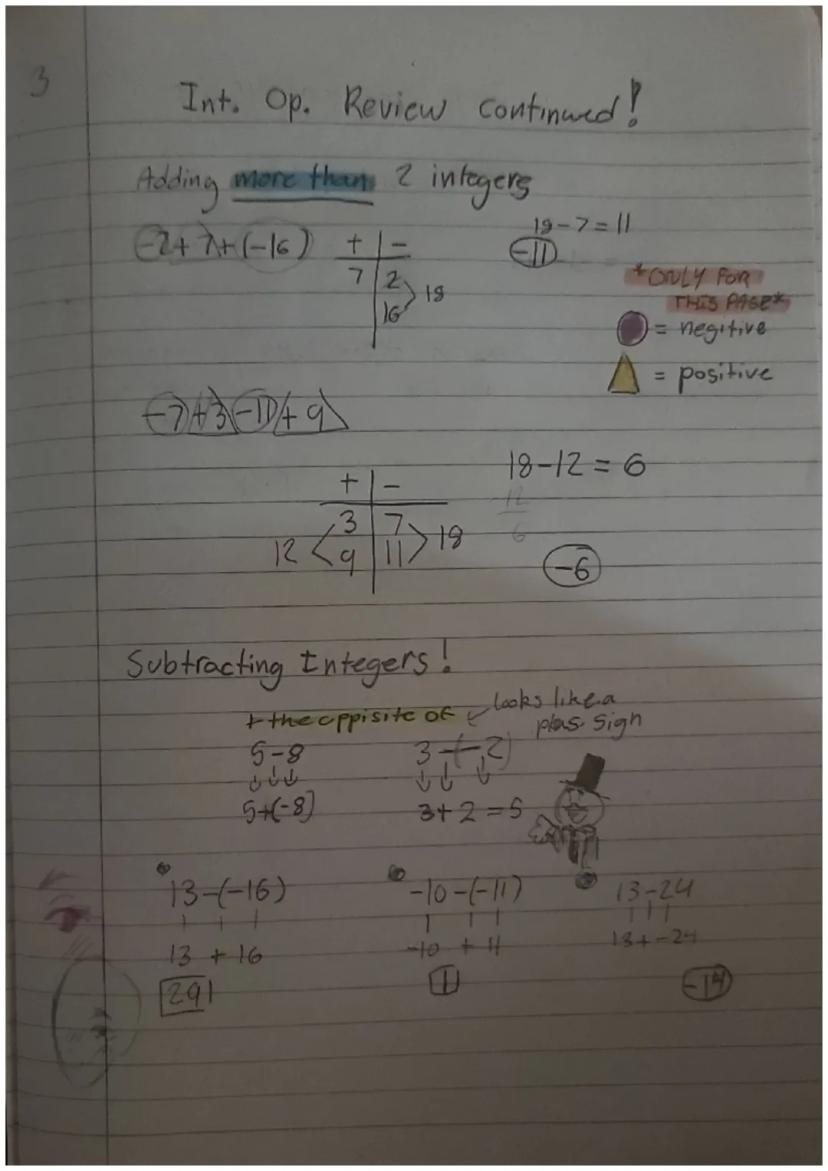 3
Int. Op. Review continued!
Adding more than 2 integers
-2+7+(-16) + - 18-7=11
-11
7 2
16 18
*ONLY FOR
THIS PAGE*
= negitive
= positive
-7+3-11+9
18-12=6
12
6
+ -
3 7
12 9 11 18
-6
Subtracting Integers!
+ the oppisite of looks like a
plus sign
5-8 3-(-2)
5+(-8) 3+2=5
13-(-16) -10-(-11) 13-24
13+16 -10+11 13+-24
29 1 -14